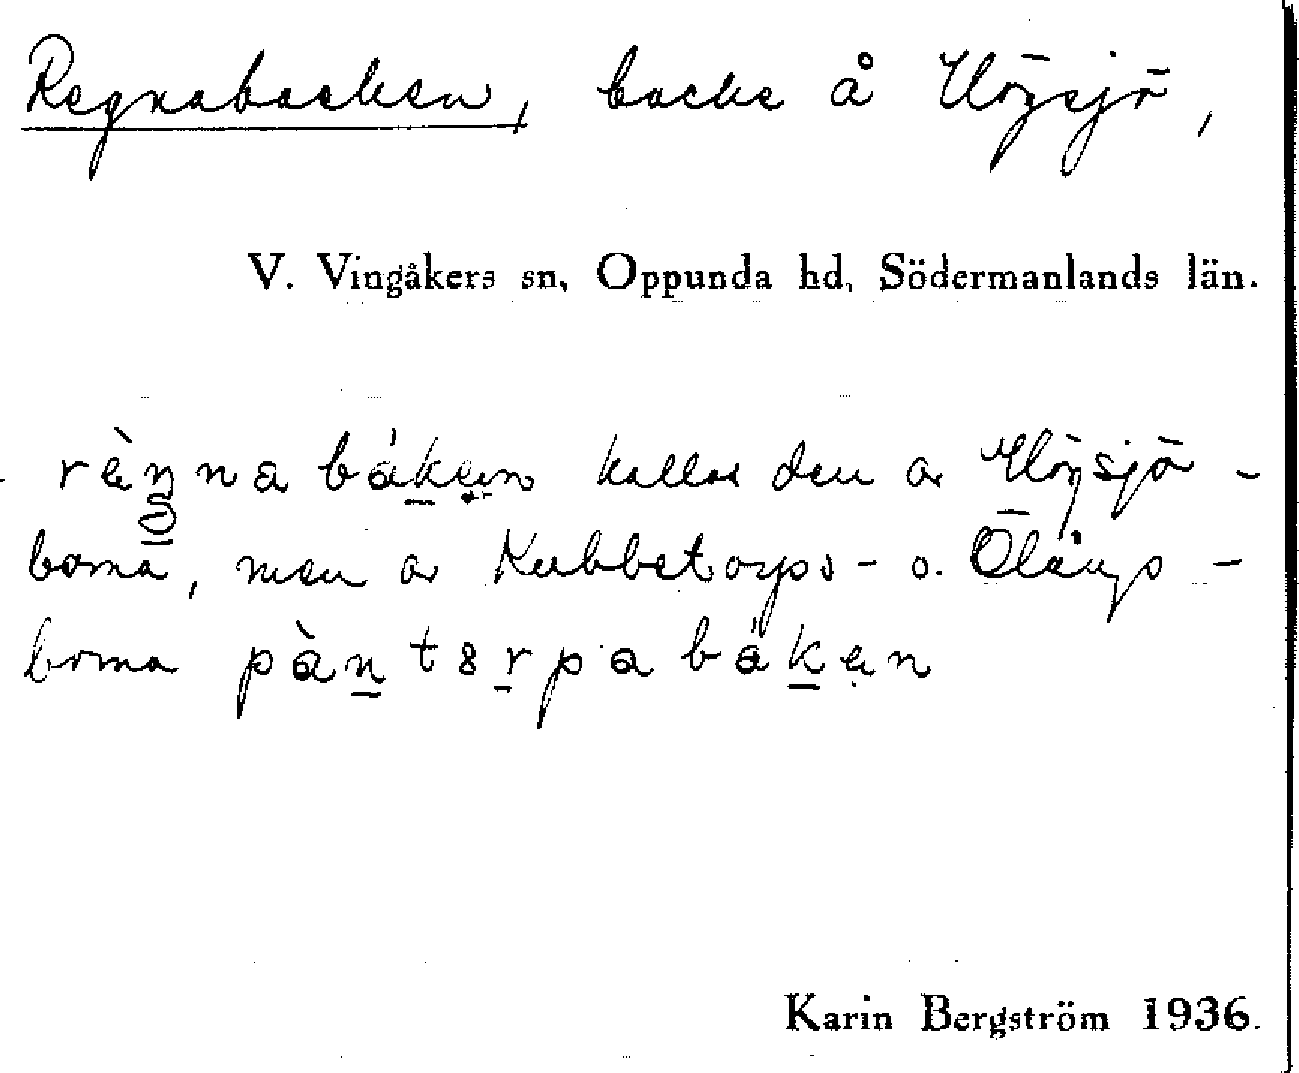 Regnabacken, backe å Högsjö,
V. Vingåkers sn, Oppunda hd, Södermanlands län.
kallas den av Högsjö-
borna, men av Kubbetorps- o. Ölängs-
borna pàntɵrpabäken
Karin Bergström 1936.